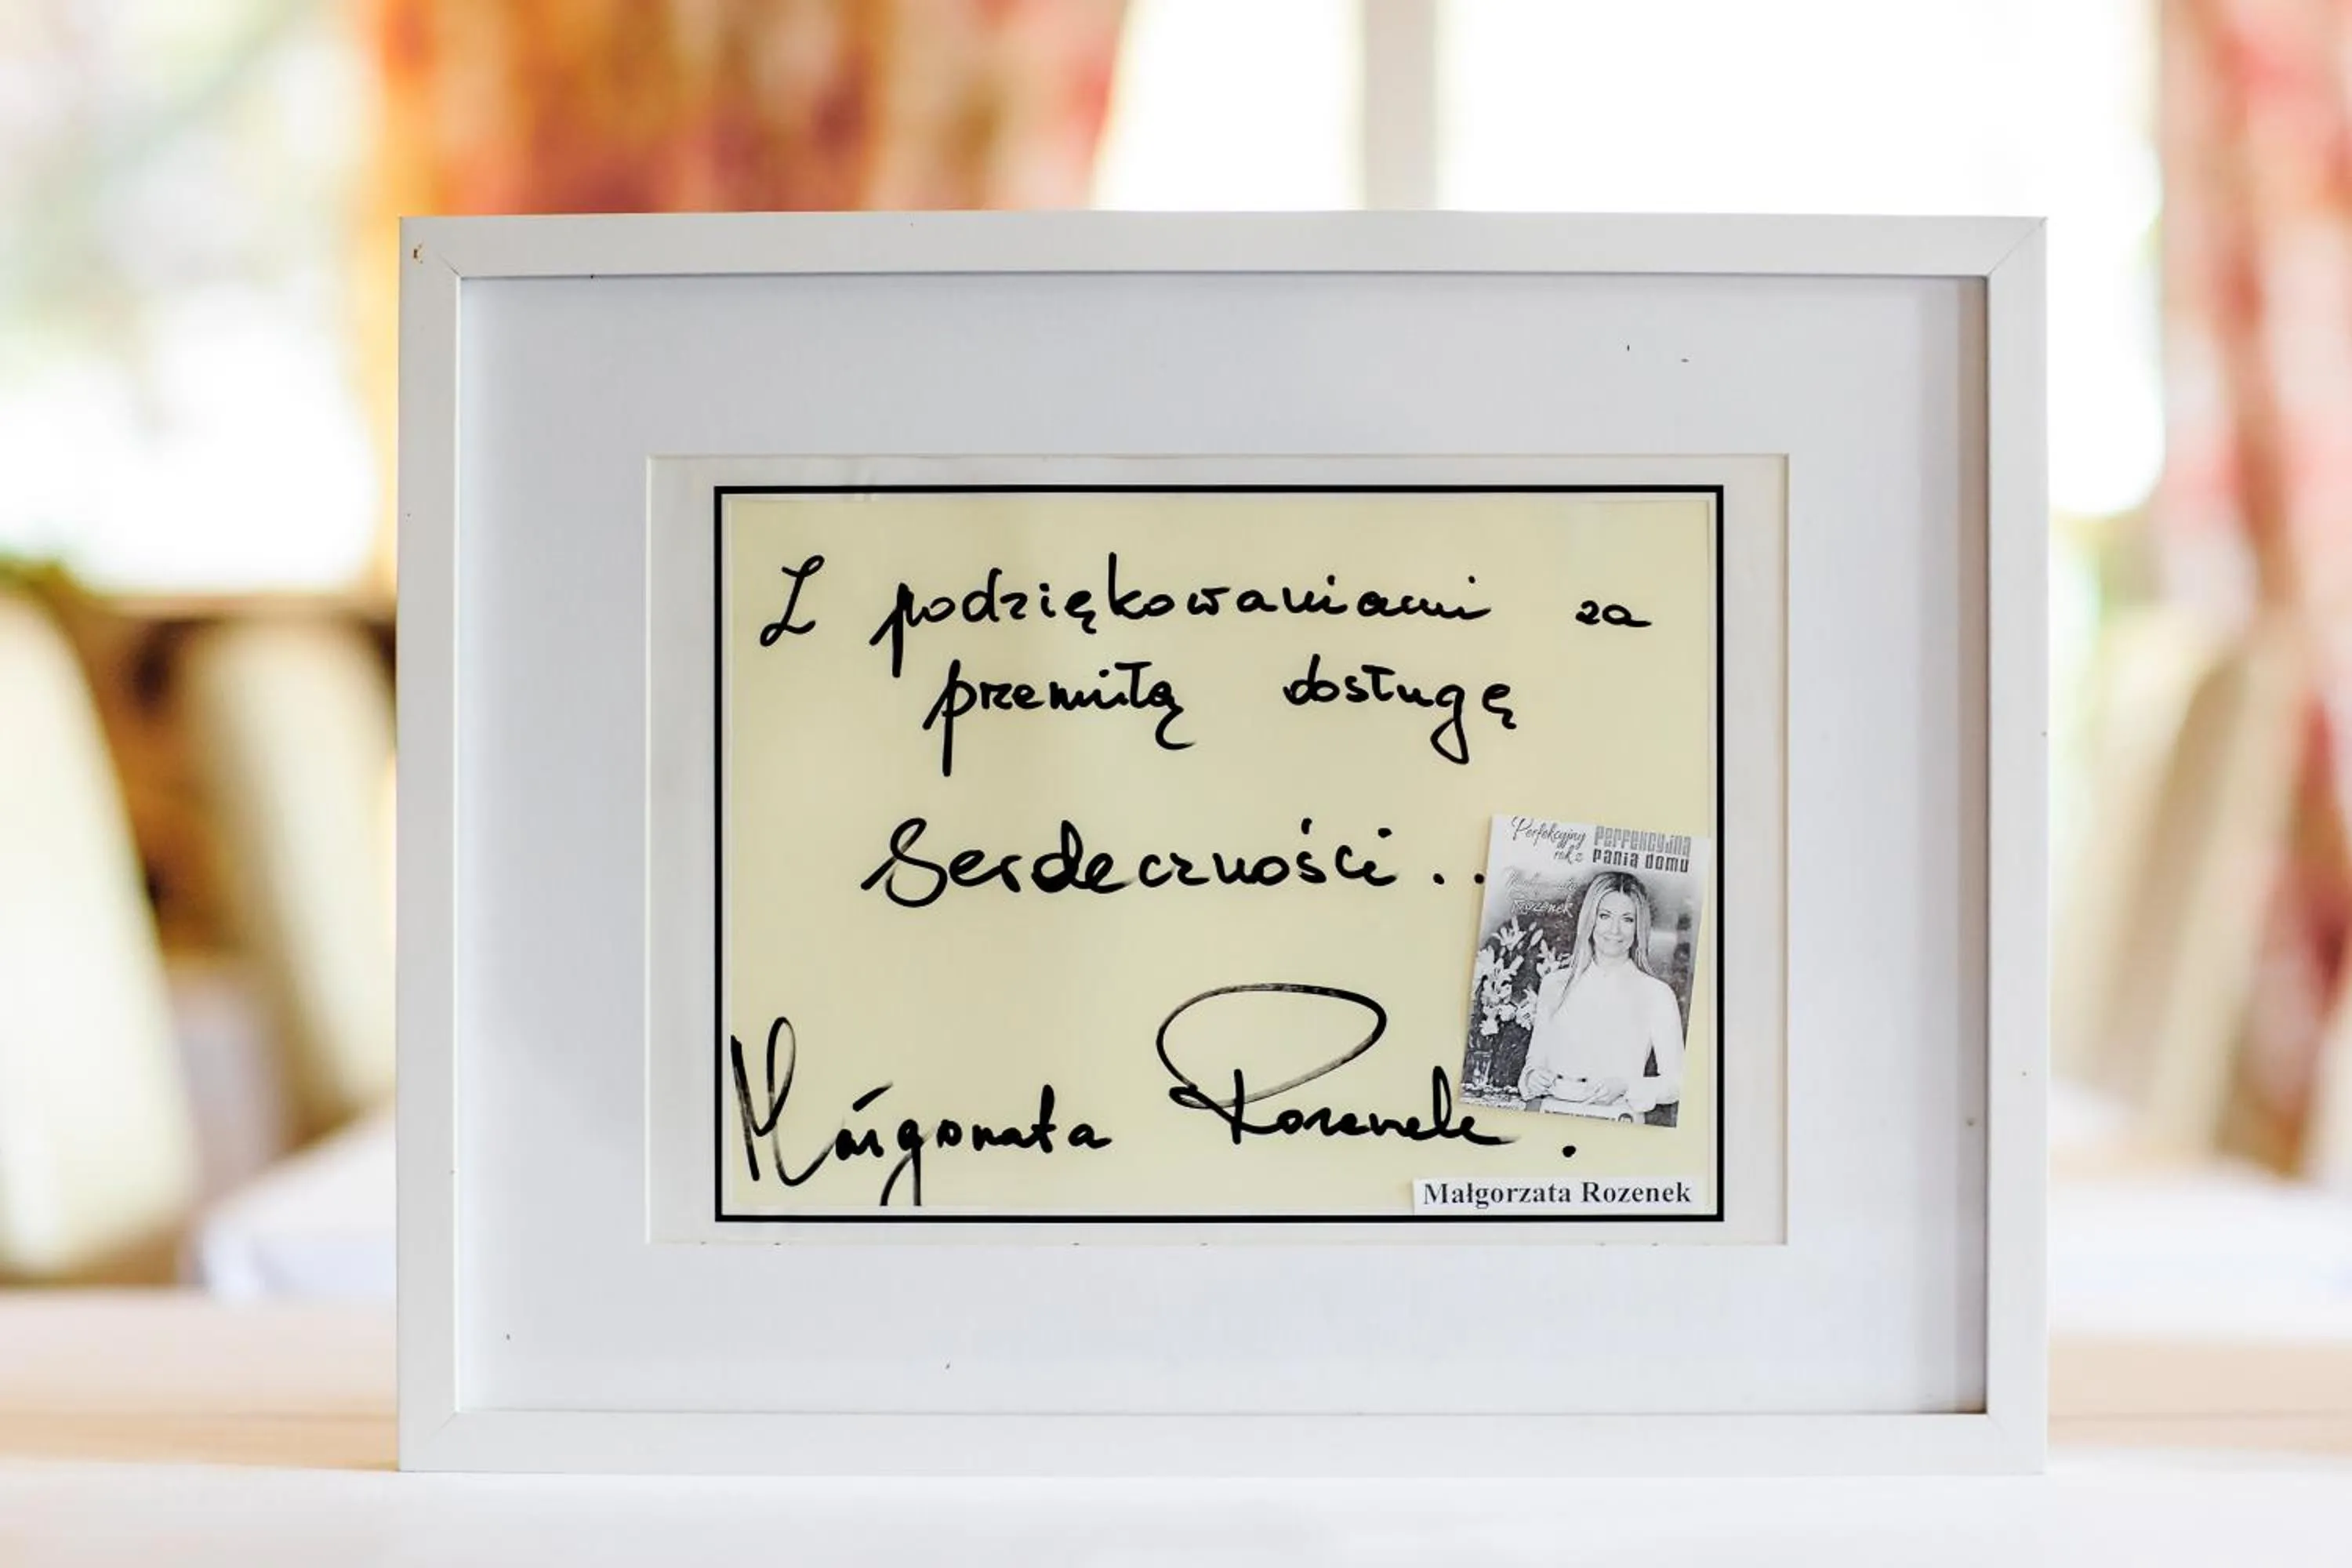 Z podziękowaniami za
przemiłą obsługę
Serdeczności..
Małgorzata Rozenek.
Perfekcyjny rok z
PERFEKCYJNA
pania domu
Małgorzata
Rozenek
Małgorzata Rozenek